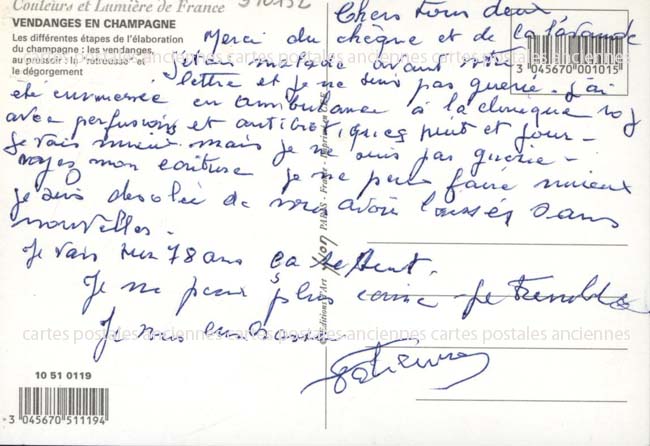 Couleurs et Lumière de France
VENDANGES EN CHAMPAGNE
Les différentes étapes de l'élaboration
du champagne : les vendanges,
au pressoir, la "retrousse" et
le dégorgement
Chers tous deux
Merci du chèque et de la lavande
J'étais malade avant votre
lettre et je ne suis pas guerie. J'ai
été emmenée en ambulance à la clinique
avec perfusions et antibiotiques nuit et jour -
Je vais mieux mais je ne suis pas guerie -
voyez mon ecriture je ne peux faire mieux
je suis desolée de vous avoir laissés sans
nouvelles.
Je vais sur 78 ans ça se sent.
Je ne peux plus ecrire - Je tremble
Je vous embrasse
cartes postales anciennes cartes postales anciennes cartes postales anciennes
10 51 0119
3 045670 511194
3 045670 001015